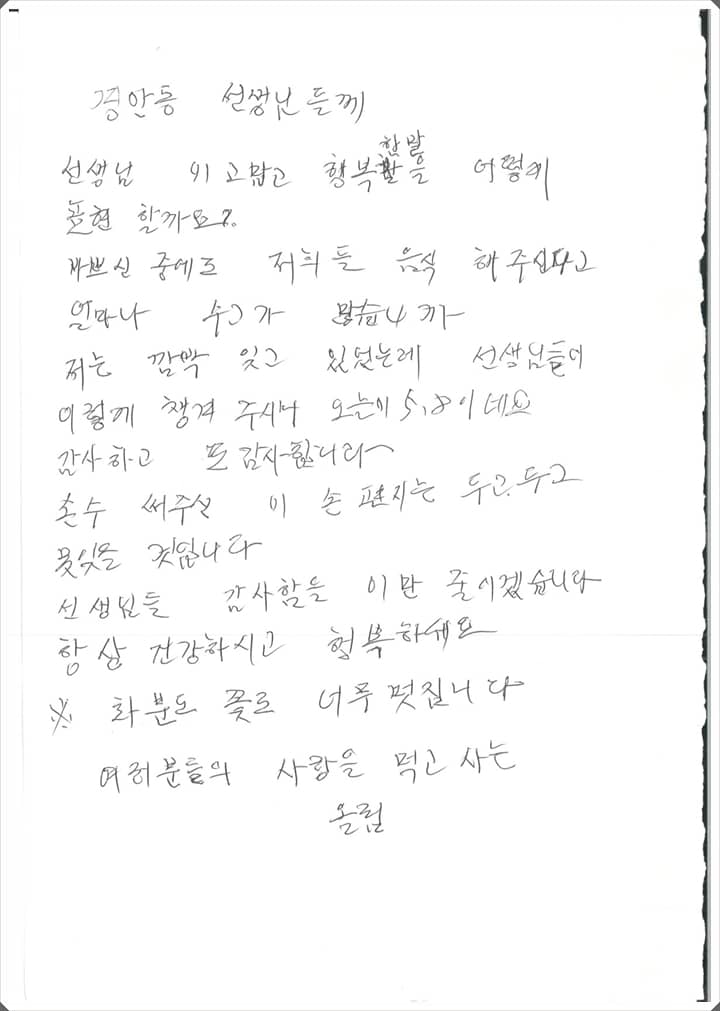 경안동 선생님들께
선생님 이 고맙고 행복한말을 어떻게
표현 할까요?
바쁘신 중에도 저희들 음식 해 주신다고
얼마나 수고가 많습니까
저는 깜박 잊고 있었는데 선생님들이
이렇게 챙겨 주시니 오늘이 5.8이네요
감사하고 또 감사합니다
손수 써주신 이 손편지는 두고.두고
못잊을 것입니다
선생님들 감사함을 이만 줄이겠습니다
항상 건강하시고 행복하세요
※ 화분도 꽃도 너무 멋집니다
여러분들의 사랑을 먹고 사는
올림